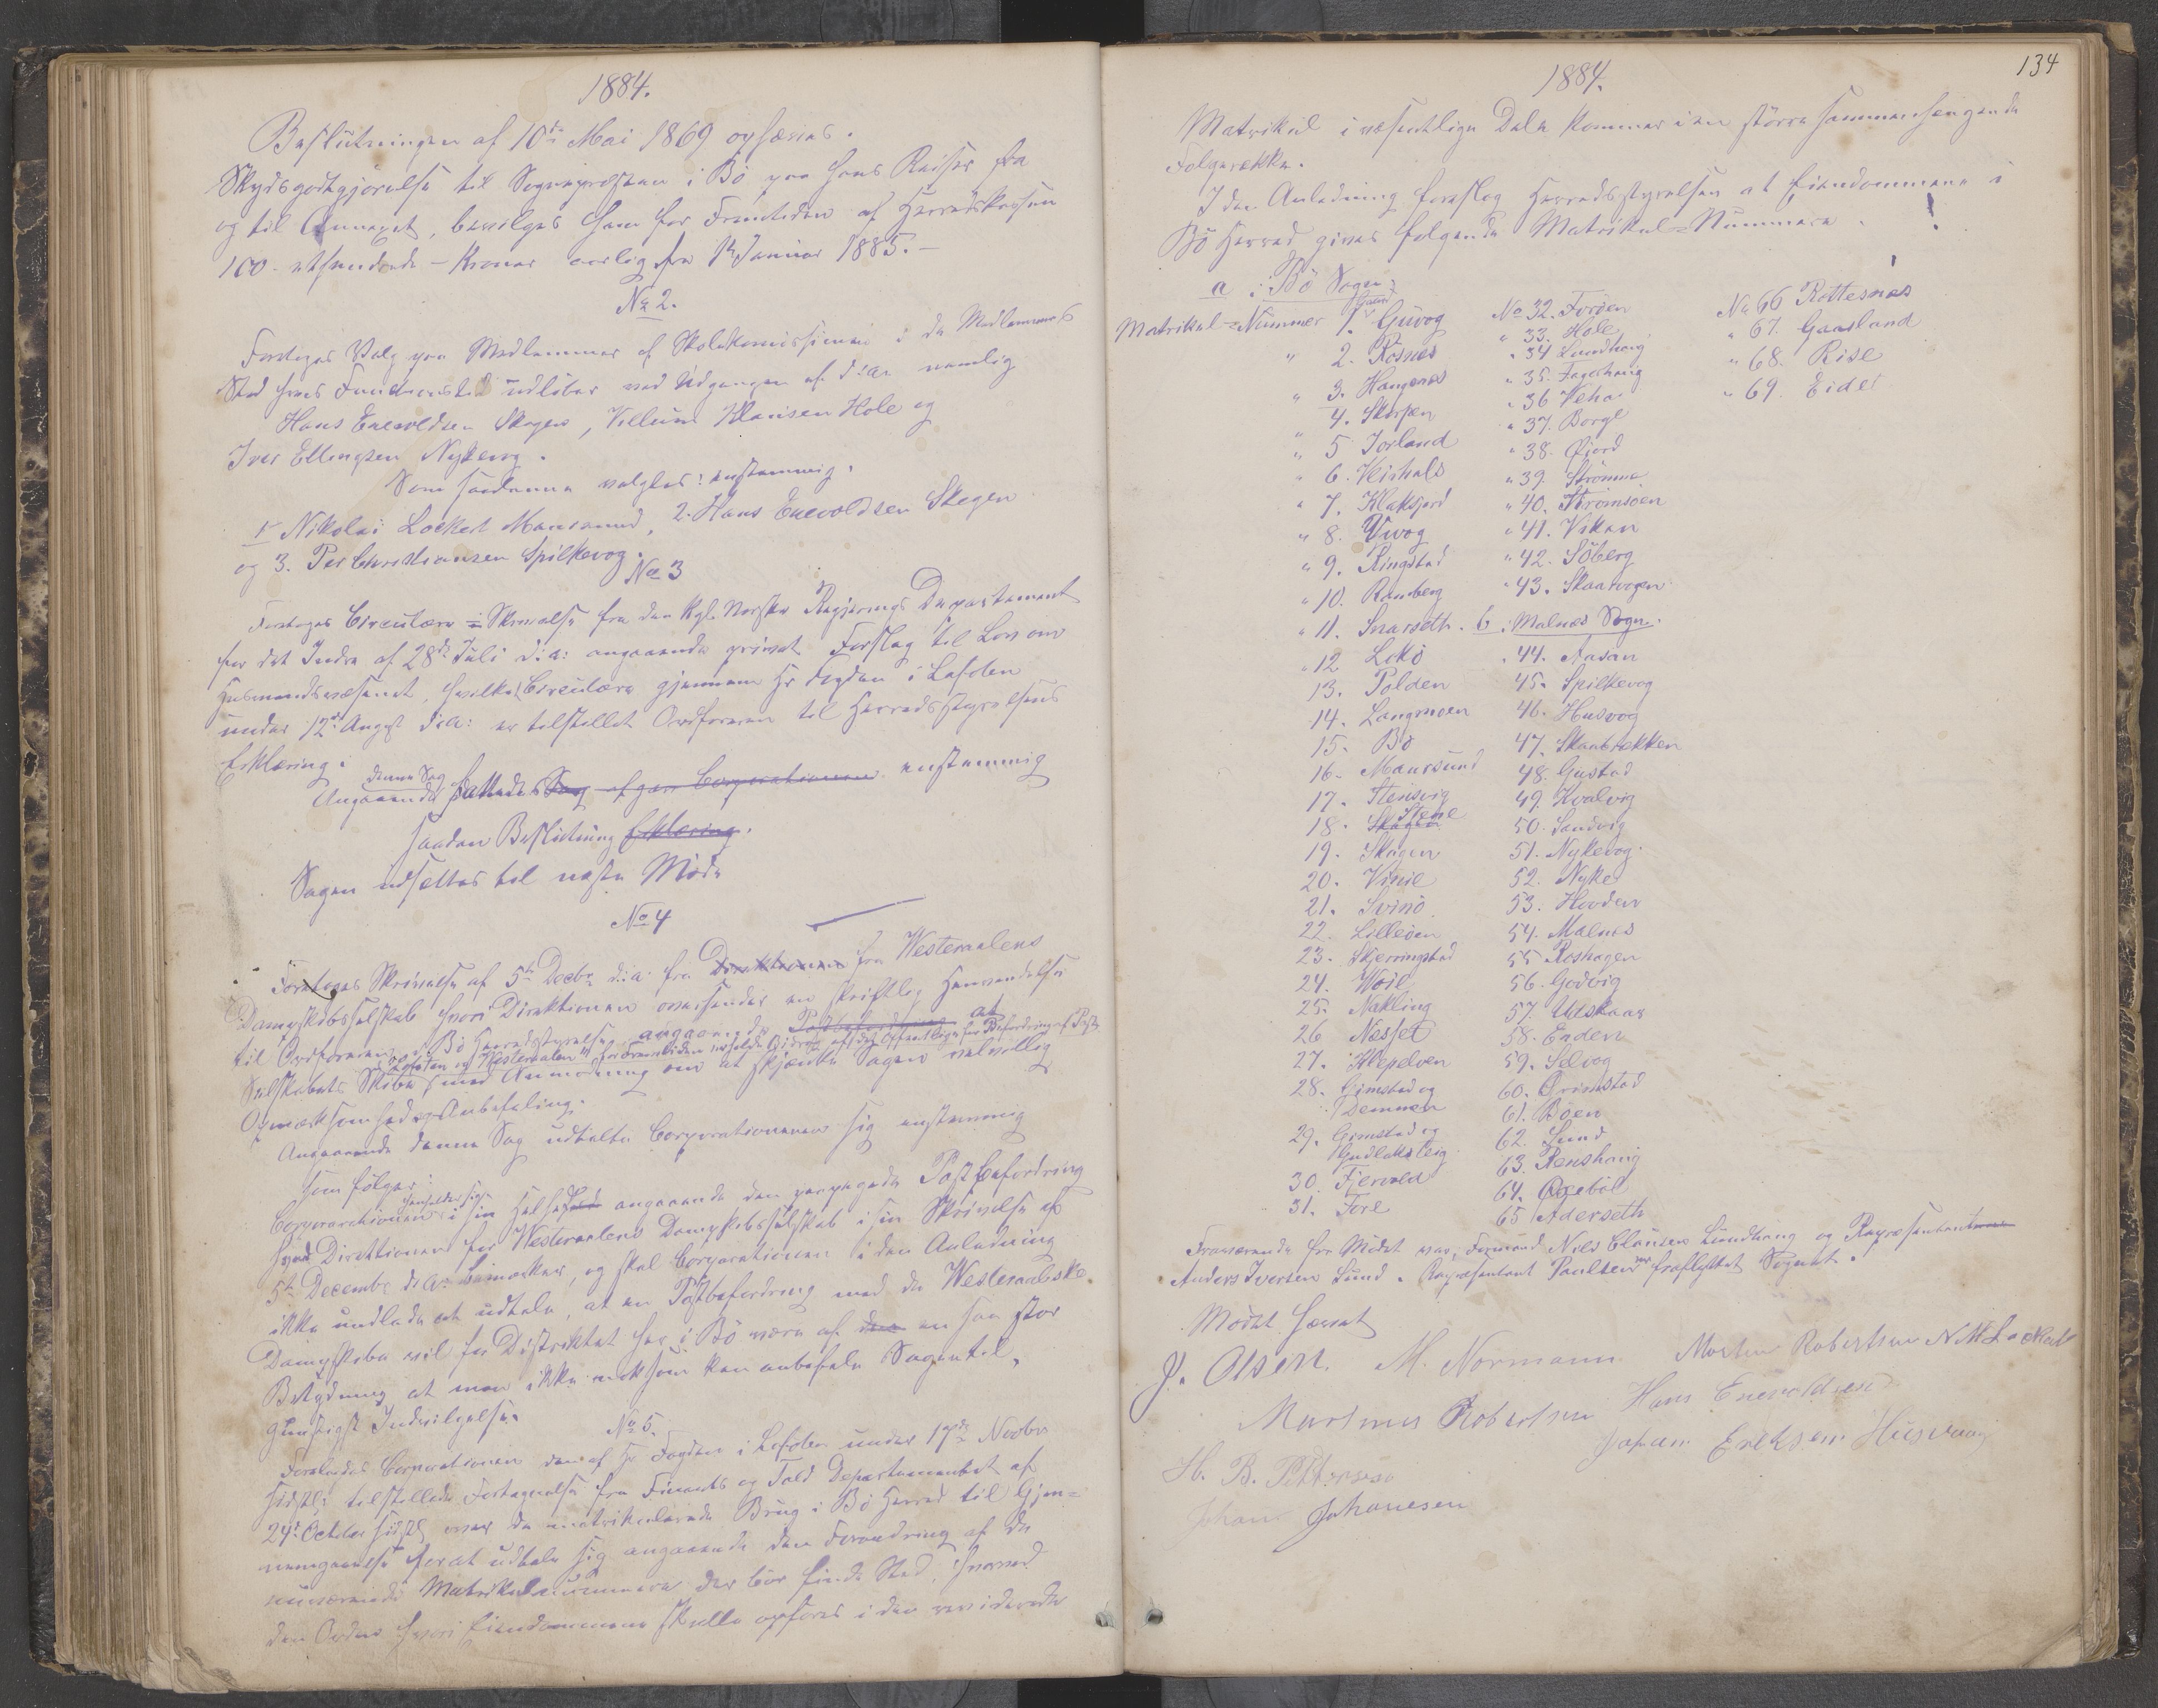 1884.
Beslutningen af 10de Mai 1869 ophæves.
Skydsgodtgjørelse til Sognepresten i Bø paa hans Reiser fra
og til Annexet, bevilges ham for Fremtiden af Herredskassen
100 - ethundrede - Kroner aarlig fra 1ste Januar 1885. -
No 2.
Foretoges Valg paa Medlemmer af Skolekomissionen i de Medlemmers
Sted hvis Functionstid udløber ved Udgangen af d: a: nemlig
Hans Enevoldsen Skagen, Villum Hansen Hole og
Iver Ellingsen Nykevog.
Som saadanne valgtes: enstemmig.
1. Nikolai Lockert Maursund, 2. Hans Enevoldsen Skagen
og 3. Per Christiansen Spilkevog.
No 3
Foretoges Circulære = Skrivelse fra den Kgl. Norske Regjerings Departement
for det Indre af 28de Juli d: a: angaaende privat Forslag til Lov om
Husmandsvæsenet, hvilket Circulære gjennem Hr Fogden i Lofoten
under 12te August d: a: er tilstillet Ordføreren til Herredsstyrelsens
Erklæring.
denne Sag
Angaaende fattedes Sag afgav Corporationen enstemmig
saadan Beslutning Erklæring.
Sagen udsættes til næste Møde
No 4
Foretoges Skrivelse af 5te Decbr d: a: fra Direktionen fra Westeraalens
Dampskibsselskab hvori Direktionen oversender en skriftlig Henvendelse
til Ordføreren i Bø Herredsstyrelse angaaende Postbefordring at
Lofoten og Westeraalen for Fremtiden erholde Bidrag af det Offentlige for Befordring af Post
Selskabets Skibe med Anmodning om at skjænke Sagen velvillig
Opmærksomhed og Anbefaling.
Angaaende denne Sag udtalte Corporationen sig enstemmig
som følger:
henholder sig
Corporationen i sin Helhed angaaende den paapegede Postbefordring
hvad Direktionen for Westeraalens Dampskibsselskab i sin Skrivelse af
5te Decembr d: a: bemærker, og skal Corporationen i den Anledning
ikke undlade at udtale, at en Postbefordring med de Westeraalske
Dampskibe vil for Distriktet her i Bø være af den en saa stor
Betydning at man ikke nok som kan anbefale Sagen til
gunstigst Indvilgelse.
No 5.
Foreholdes Corporationen den af Hr Fogden i Lofoten under 17de Novbr
sidstl: tilstillede Fortegnelse fra Finants og Told Departementet af
24de October sidstl over de matrikulerede Brug i Bø Herred til Gjen=
nemgaaelse for at udtale sig angaaende den Forandring af de
nuværende Matrikulnummere der bør finde Sted, hvorved
den Orden hvori Eiendommene skulle opføres i den reviderede
134
1884.
Matrikul i væsentlige Dele kommer i en større sammenhængende
Følgerække.
I den Anledning foreslog Herredsstyrelsen at Eiendommene i
Bø Herred gives følgende Matrikul=Nummere.
a i Bø Sogn:
Matrikul=Nummer 1. Guvog
" 2. Rosnæs
" 3. Haugenæs
" 4. Skorpen
" 5 Jorland
" 6. Veirhals
" 7. Klaksjord
" 8. Vivog
" 9. Ringstad
" 10. Ramberg
" 11. Snarseth.
" 12 Lokø
13. Polden
14. Langmoen
15. Bø
16. Maursund
17. Stensvig
18. Skagen Stene
19. Skagen
20. Vinie
21. Svinø
22. Lilleøen
23. Skjerringstad
24. Woil
25. Nakling
26 Næsset
27. Klepelven
28. Gimstad og
Demmen
29. Gimstad og
Gudlaksleig
30. Fjervold
31. Fore
No 32. Forøen
" 33. Hole
" 34 Lundhaug
" 35. Fagerhaug
" 36 Veha
" 37. Borge
" 38. Øjord
" 39. Strømme
" 40. Strømsøen
" 41. Vikan
" 42. Søberg
" 43. Skaarvogen
b i Malnæs Sogn.
" 44. Aasan
45. Spilkevog
46. Husvog
47. Skaabrekken
48. Gustad
49. Hvalvig
50. Sandvig
51. Nykevog.
52. Nyke
53. Hovden
54. Malnæs
55 Roshagen
56. Godvig
57. Utskaar
58. Enden
59. Selvog
60. Grimstad
61. Bøen
62. Lund
63. Renshaug
64. Grebøl
65 Aderseth
No 66 Rottesnæs
" 67. Gaasland
" 68. Rise
" 69. Eidet
Fraværende fra Mødet var, Formand Nils Clausen Lundhaug og Repræsentant
Anders Iversen Lund. Repræsentant Paulsen var fraflyttet Sognet.
Mødet hævet
J. Olsen. M. Normann Morten Robertsen N M Lockert
Martinus Robertsen Hans Enevoldsen
H. B. Pettersen Johan Eriksen Husvaag
Johan Johanesen